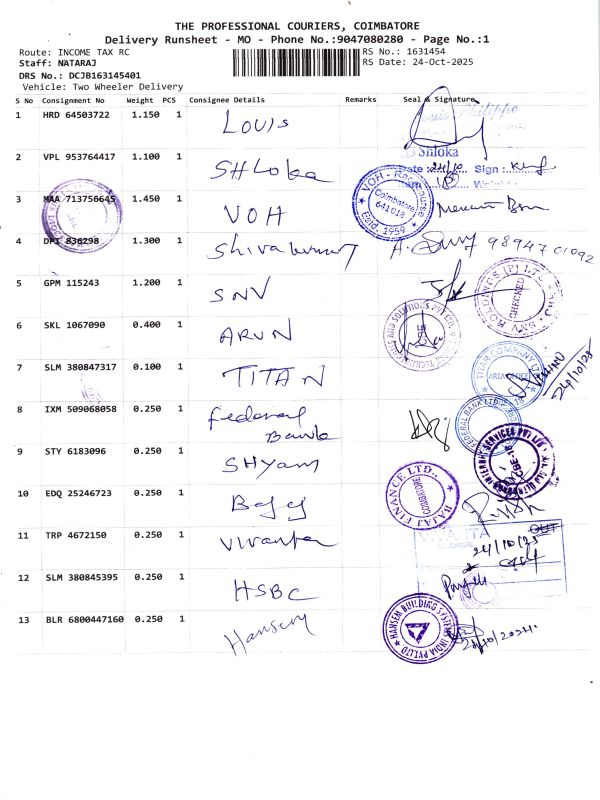 THE PROFESSIONAL COURIERS, COIMBATORE
Delivery Runsheet - MO - Phone No.:9047080280 - Page No.:1
Route: INCOME TAX RC
RS No.: 1631454
Staff: NATARAJ
RS Date: 24-Oct-2025
DRS No.: DCJB163145401
Vehicle: Two Wheeler Delivery
S No Consignment No Weight PCS Consignee Details Remarks Seal & Signature
1 HRD 64503722 1.150 1 LOUIS
2 VPL 953764417 1.100 1 SHLoka
Shloka
Date: 24/10 Sign:
3 MAA 713756645 1.450 1 VOH
VOH - Race Course Coimbatore 641018 Estd. 1959
4 DPI 836298 1.300 1 Shivakumar 98947 01092
5 GPM 115243 1.200 1 SNV
SNV HOLDINGS (P) LTD CHECKED
6 SKL 1067090 0.400 1 ARUN
7 SLM 380847317 0.100 1 TITAN
TITAN COMPANY LTD AREA OFFICE
24/10/25
8 IXM 509068058 0.250 1 Federal Bank
FEDERAL BANK LTD
9 STY 6183096 0.250 1 SHyam
10 EDQ 25246723 0.250 1 Bajaj
BAJAJ FINANCE LTD., COIMBATORE
11 TRP 4672150 0.250 1 Vivanta
OUT
24/10/25
12 SLM 380845395 0.250 1 HSBC
13 BLR 6800447160 0.250 1 Hansen
HANSEM BUILDING SYSTEMS INDIA PVT LTD